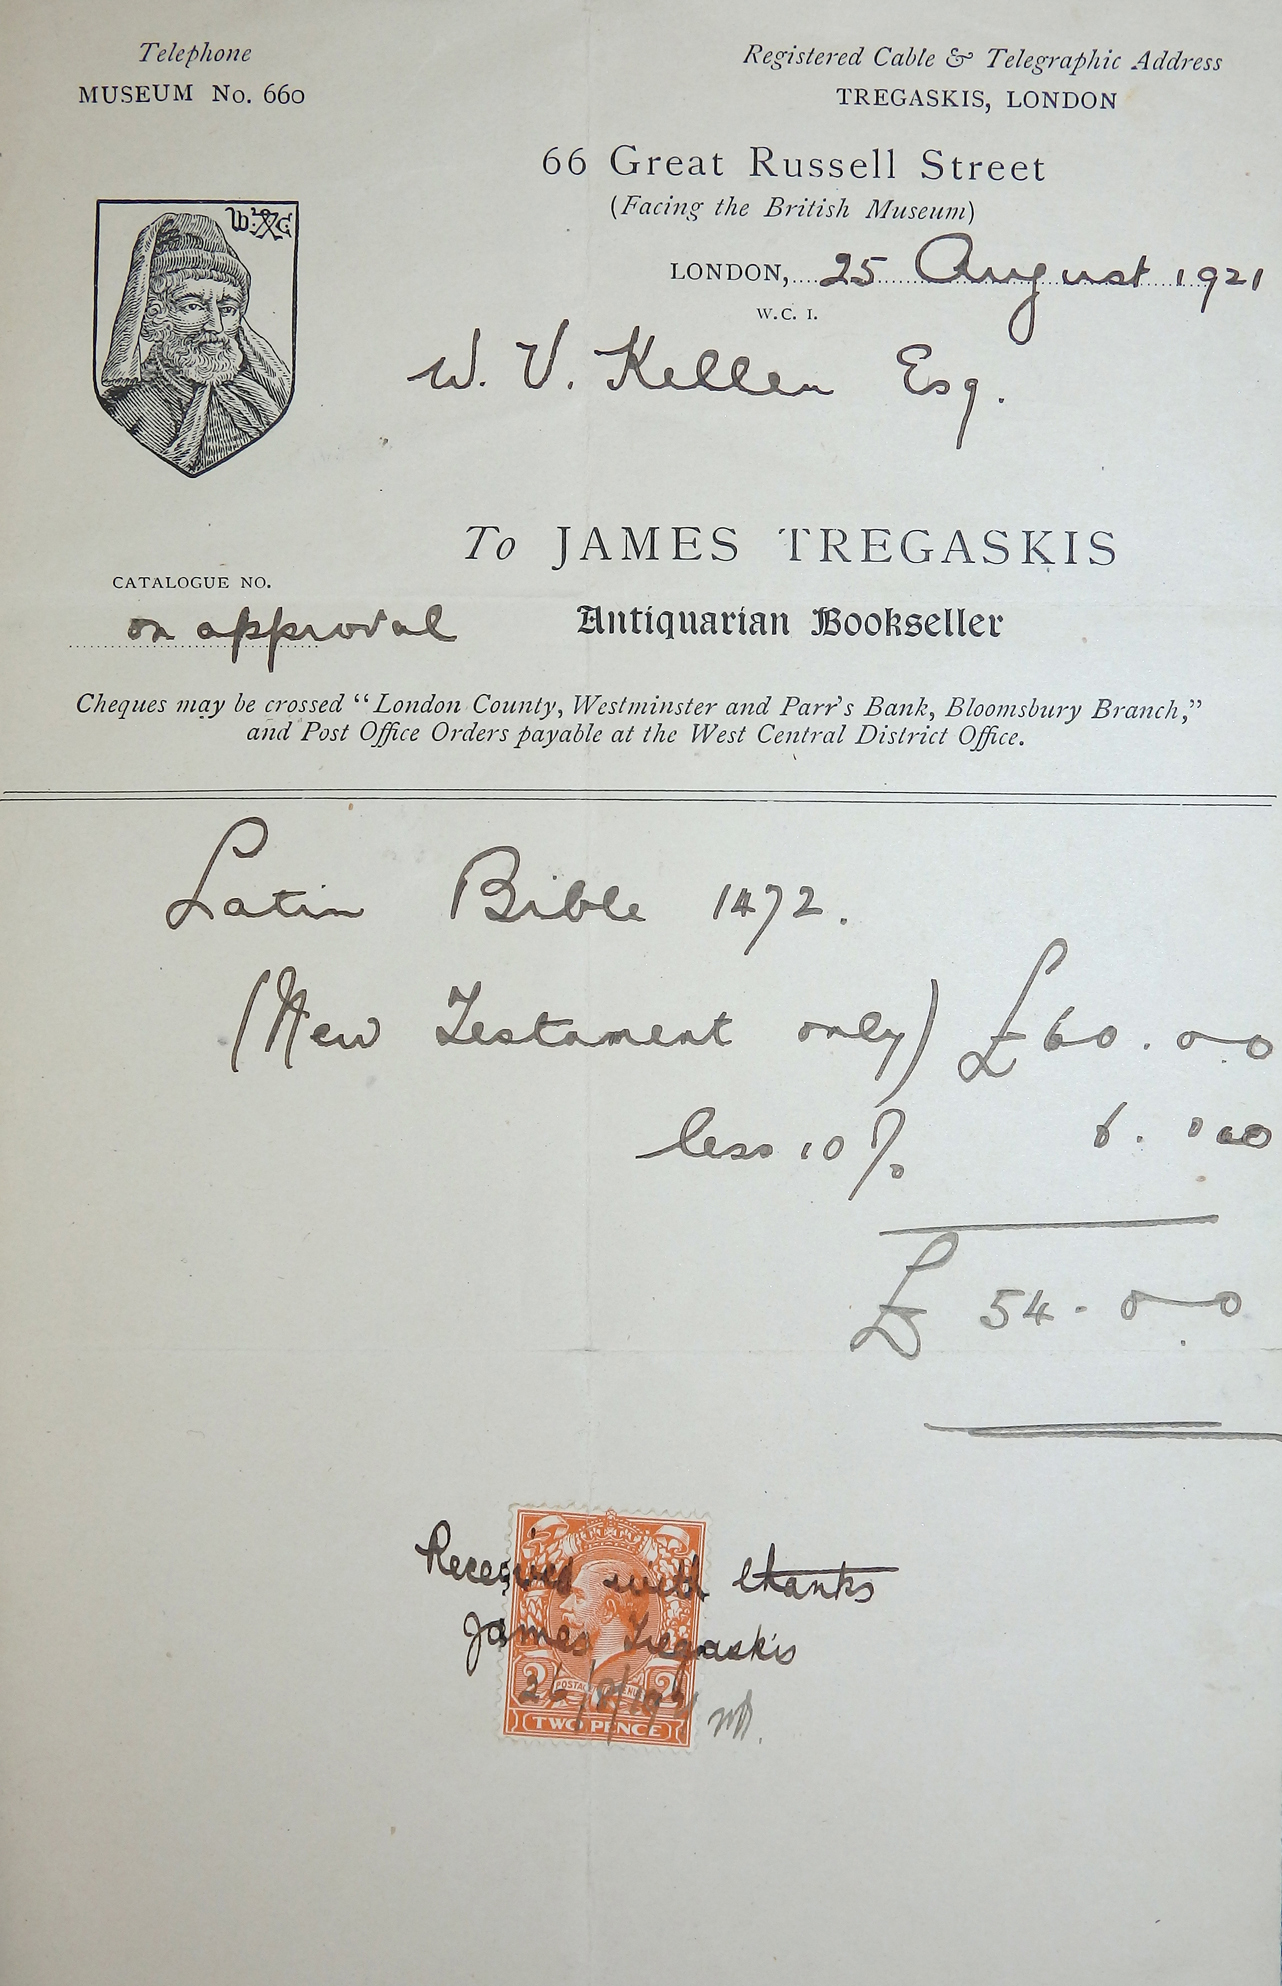 Telephone
MUSEUM No. 660
Registered Cable & Telegraphic Address
TREGASKIS, LONDON
66 Great Russell Street
(Facing the British Museum)
LONDON, 25 August 1921
W.C. 1.
W. V. Kellen Esq.
To JAMES TREGASKIS
CATALOGUE NO.
on approval
Antiquarian Bookseller
Cheques may be crossed “London County, Westminster and Parr's Bank, Bloomsbury Branch,”
and Post Office Orders payable at the West Central District Office.
Latin Bible 1472.
(New Testament only) £60.0.0
less 10% 6.0.0
£54.0.0
Received with thanks
James Tregaskis
26/8/1921
POSTAGE REVENUE
2 2
TWO PENCE